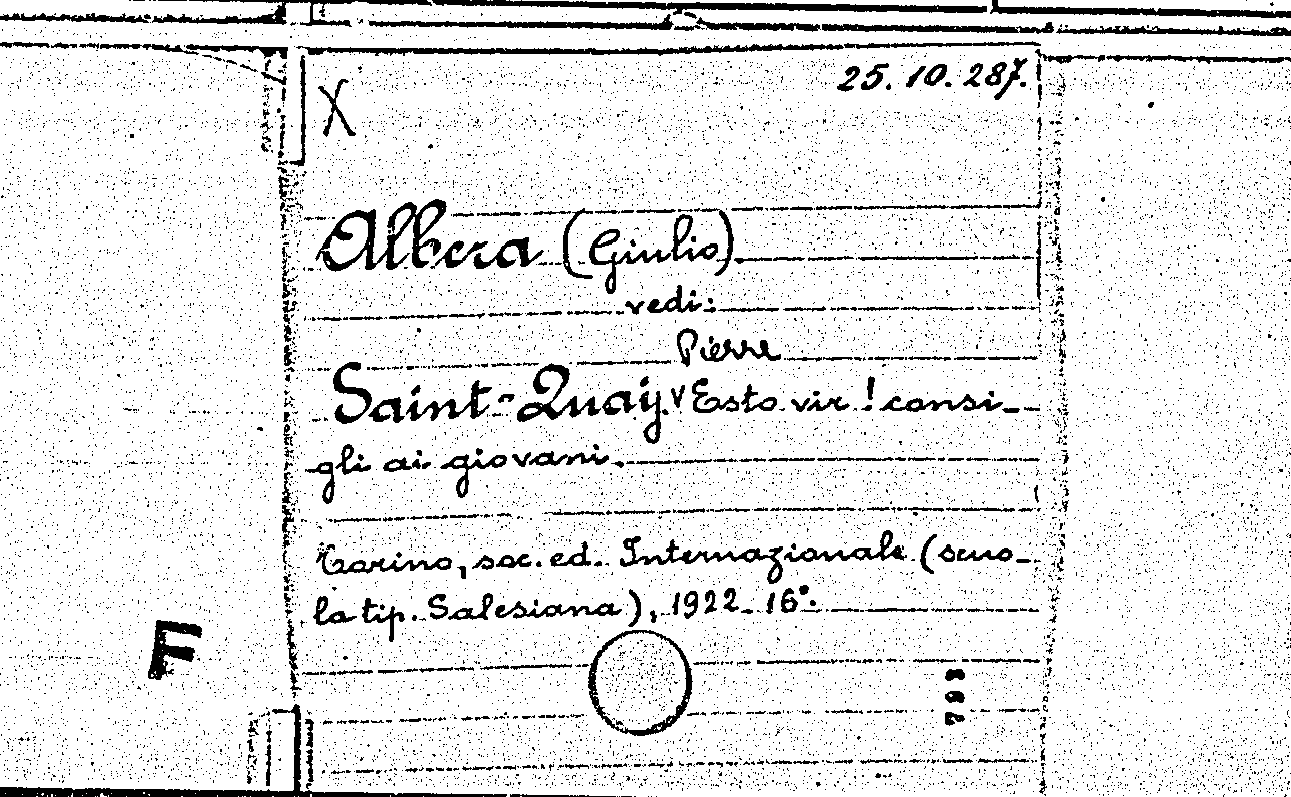 25.10.287.
X
Albera (Giulio).
vedi:
Pierre
Saint-Quay. v Esto vir! consi-
gli ai giovani.
Torino, soc. ed. Internazionale (scuo-
la tip. Salesiana), 1922. 16°.
F